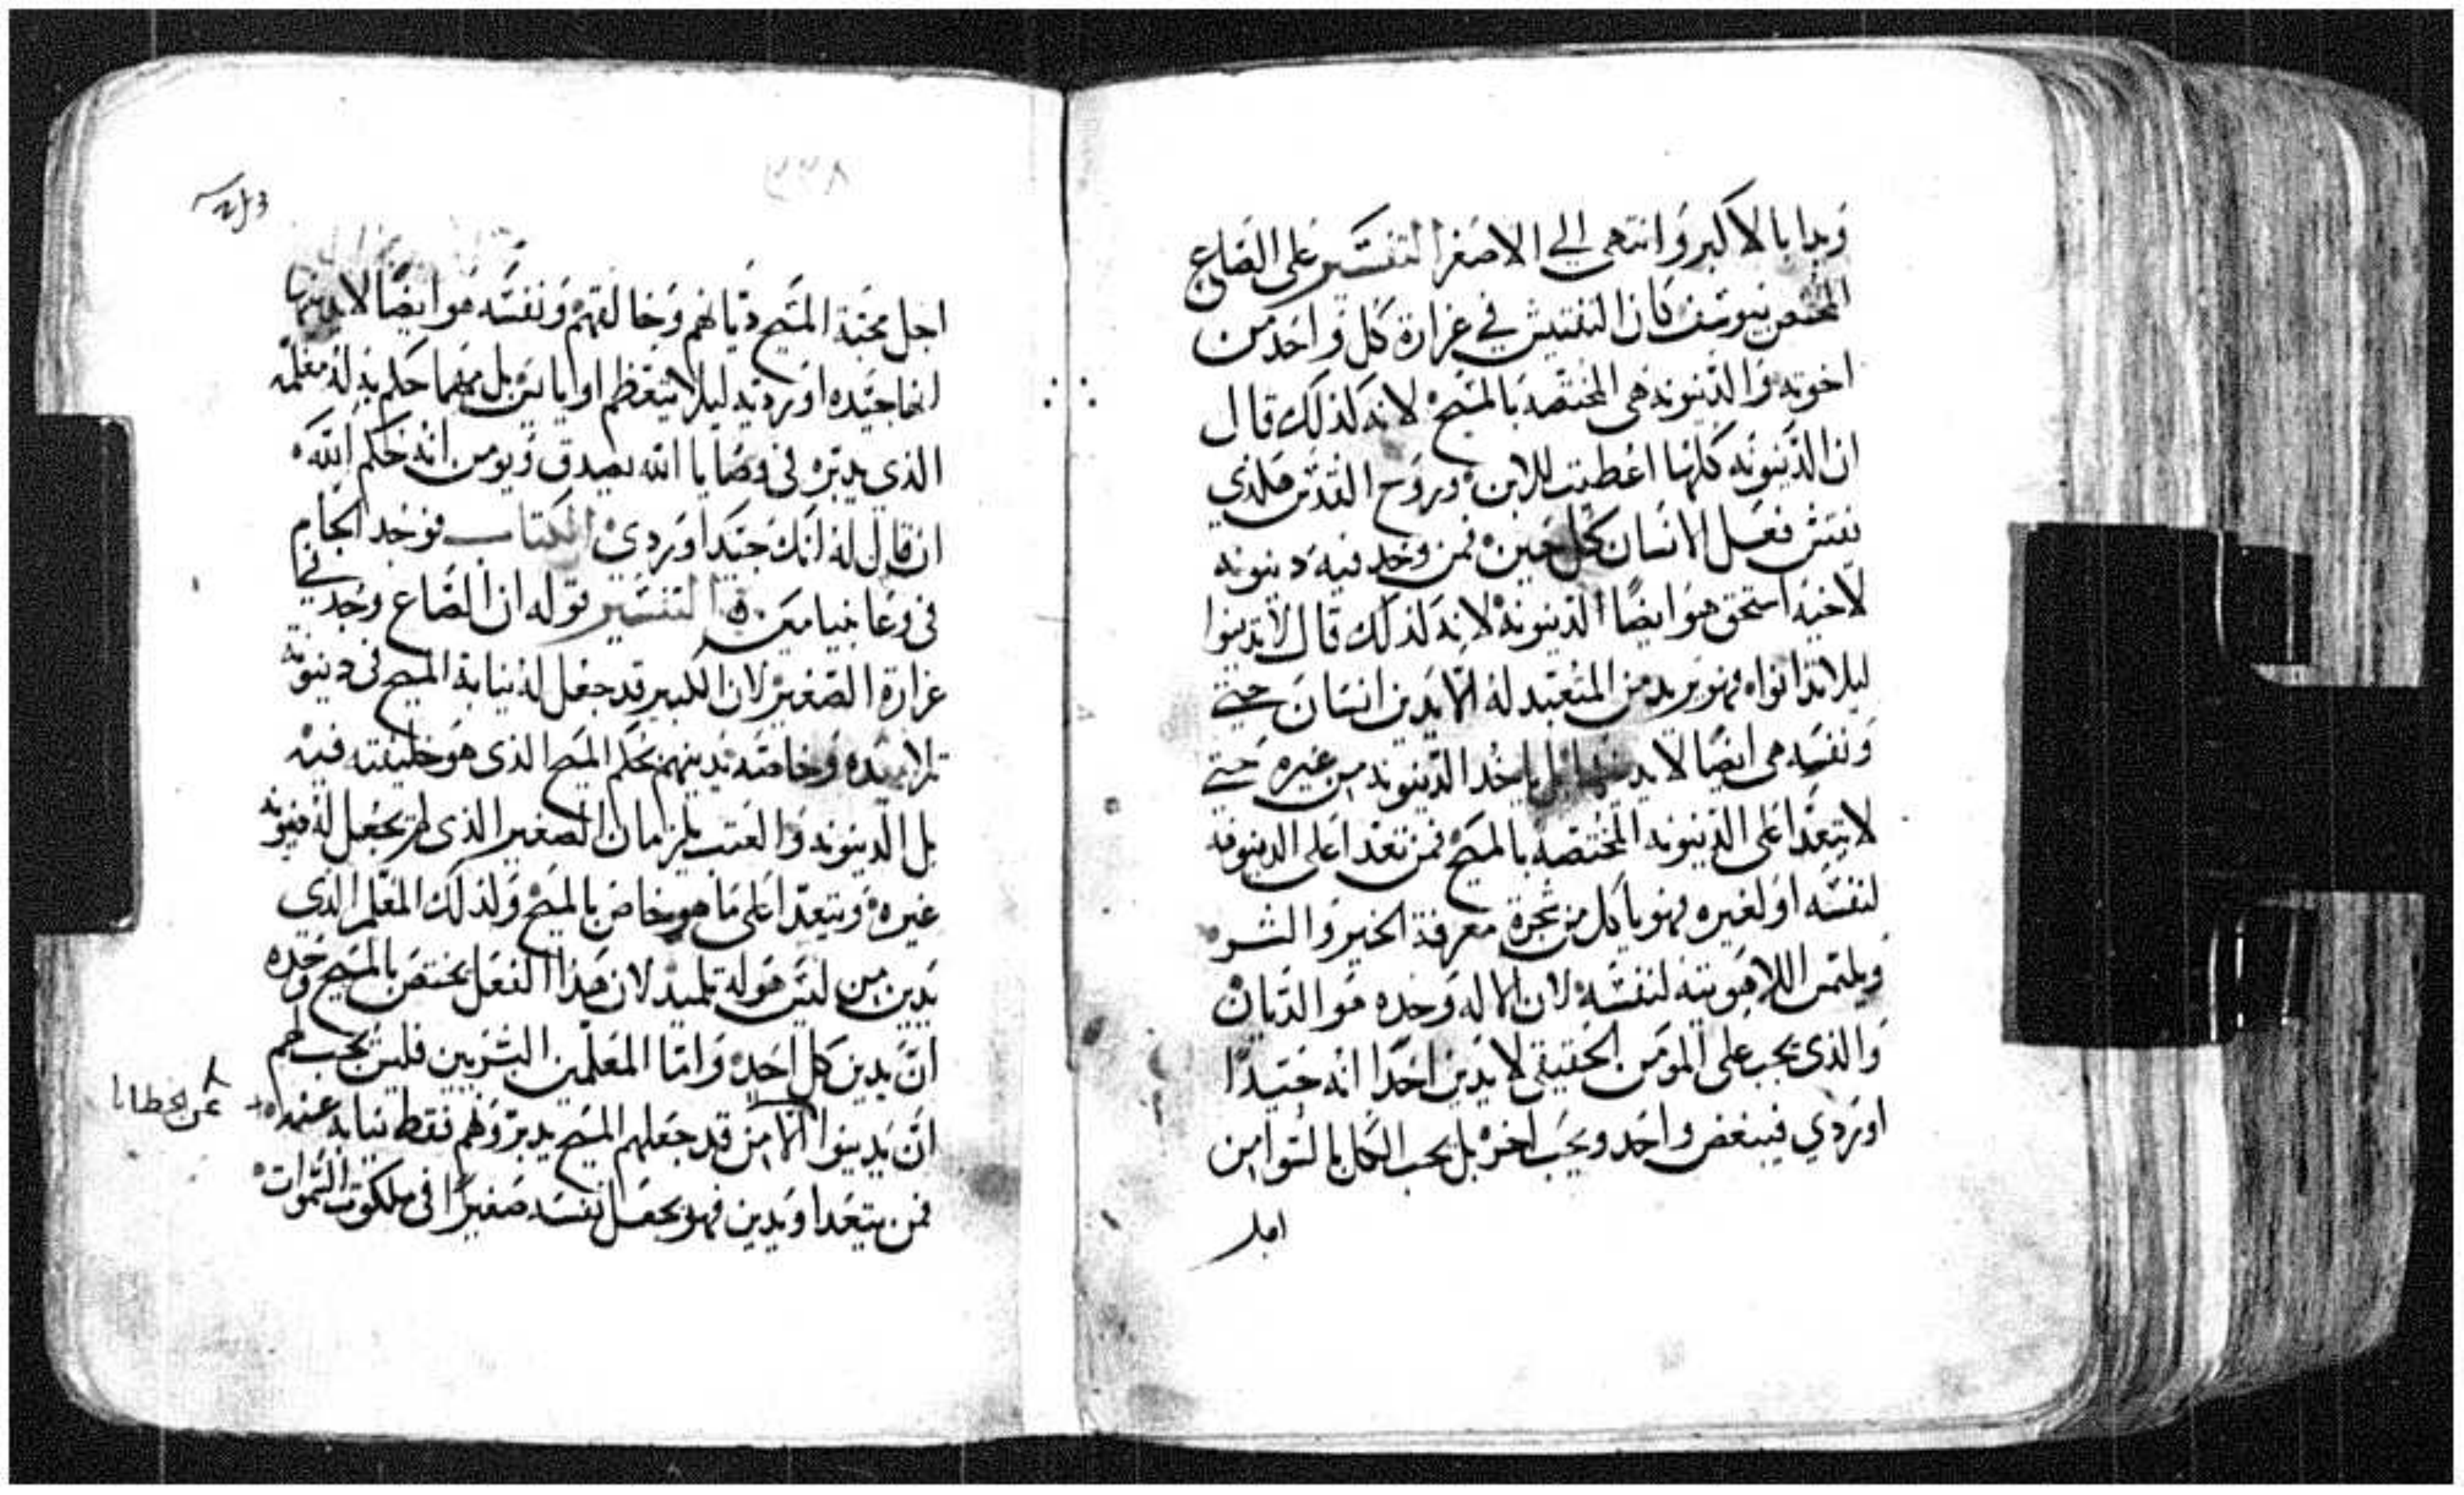 وبدا بالاكبر وانتهى الي الاصغر التفسير على الصاع
المختص بيوسف كان التفتيش في غرارة كل واحد من
اخوته والدينونه هى المختصه بالمسيح لانه لذلك قال
ان الدينونه كلها اعطيت للابن وروح القدس فلذي
نفتش فعل الانسان كل حين فمن وجد فيه دينونه
لاخيه استحق هو ايضًا الدينونة لانه لذلك قال لا تدينوا
ليلا تدانوا فهو يريد من المتعبد له الا يدين انسان حتي
ونفسه هى ايضًا لا يدينها بل ياخد الدينونه من غيره حتي
لا يتعدا على الدينونه المختصه بالمسيح فمن تعدا على الدينونه
لنفسه او لغيره فهو ياكل من شجرة معرفة الخير والشر
ويلتمس اللاهوتيه لنفسه لان الاله وحده هو الديان
والذى يجب على المومن الحقيقي لا يدين احدًا انه جيدًا
اوردي فيبغض واحد ويحب اخر بل يحب الكل بالسوا من
اجل
٣٣٨
اجل محبة المسيح ديانهم وخالقهم ونفسه هو ايضًا لا يدينها
انها جيده او رديه ليلا يتعظم او ياييس بل مهما حكم به له معلمه
الذي يدبره في وصايا الله يصدق ويومن انه حكم الله
ان قال له انك جيد او ردي الكتاب فوجد الجام
في وعا بنيامين التفسير قوله ان الصاع وجد في
غرارة الصغير لان الكبير قد جعل له نيابة المسيح في دينونة
تلاميده وخاصته يدينهم بحكم المسيح الذى هو خليفته فيه
بل الدينونه والعتب يلزمان الصغير الذى لم يجعل له دينونة
غيره ويتعدا على ما هو خاص بالمسيح ولذلك المعلم الدي
يدين من ليس هو له تلميد لان هذا الفعل يختص بالمسيح وحده
ان يدين كل احد واما المعلمين البشريين فليس يجب لهم
ان يدينوا الا من قد جعلهم المسيح يدبروهم فقط نيابه عنه
عن الخطايا
فمن يتعدا ويدين فهو يجعل نفسه صغيرًا في ملكوت السموات